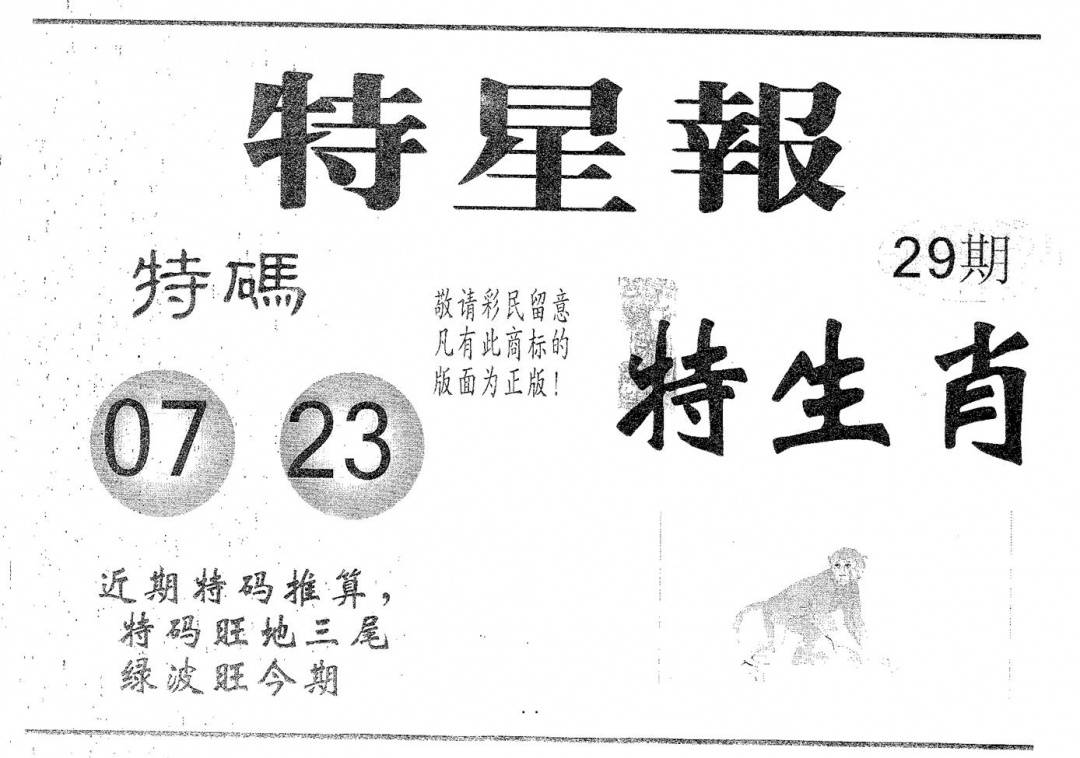 特星報
29期
特碼
07 23
敬请彩民留意
凡有此商标的
版面为正版！
特生肖
近期特码推算，
特码旺地三尾
绿波旺今期